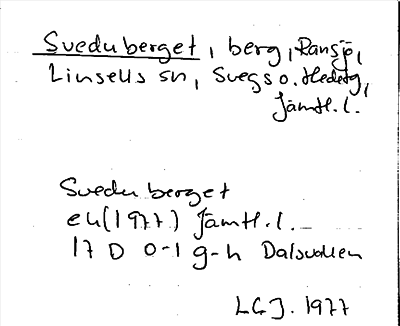 Sveduberget, berg, Ransjö,
Linsells sn, Svegs o. Hedetg,
Jämtl. l.
Svedu berget
ek(1977) Jämtl. l.
17 D 0-1 g-h Dalsvallen
LGJ. 1977